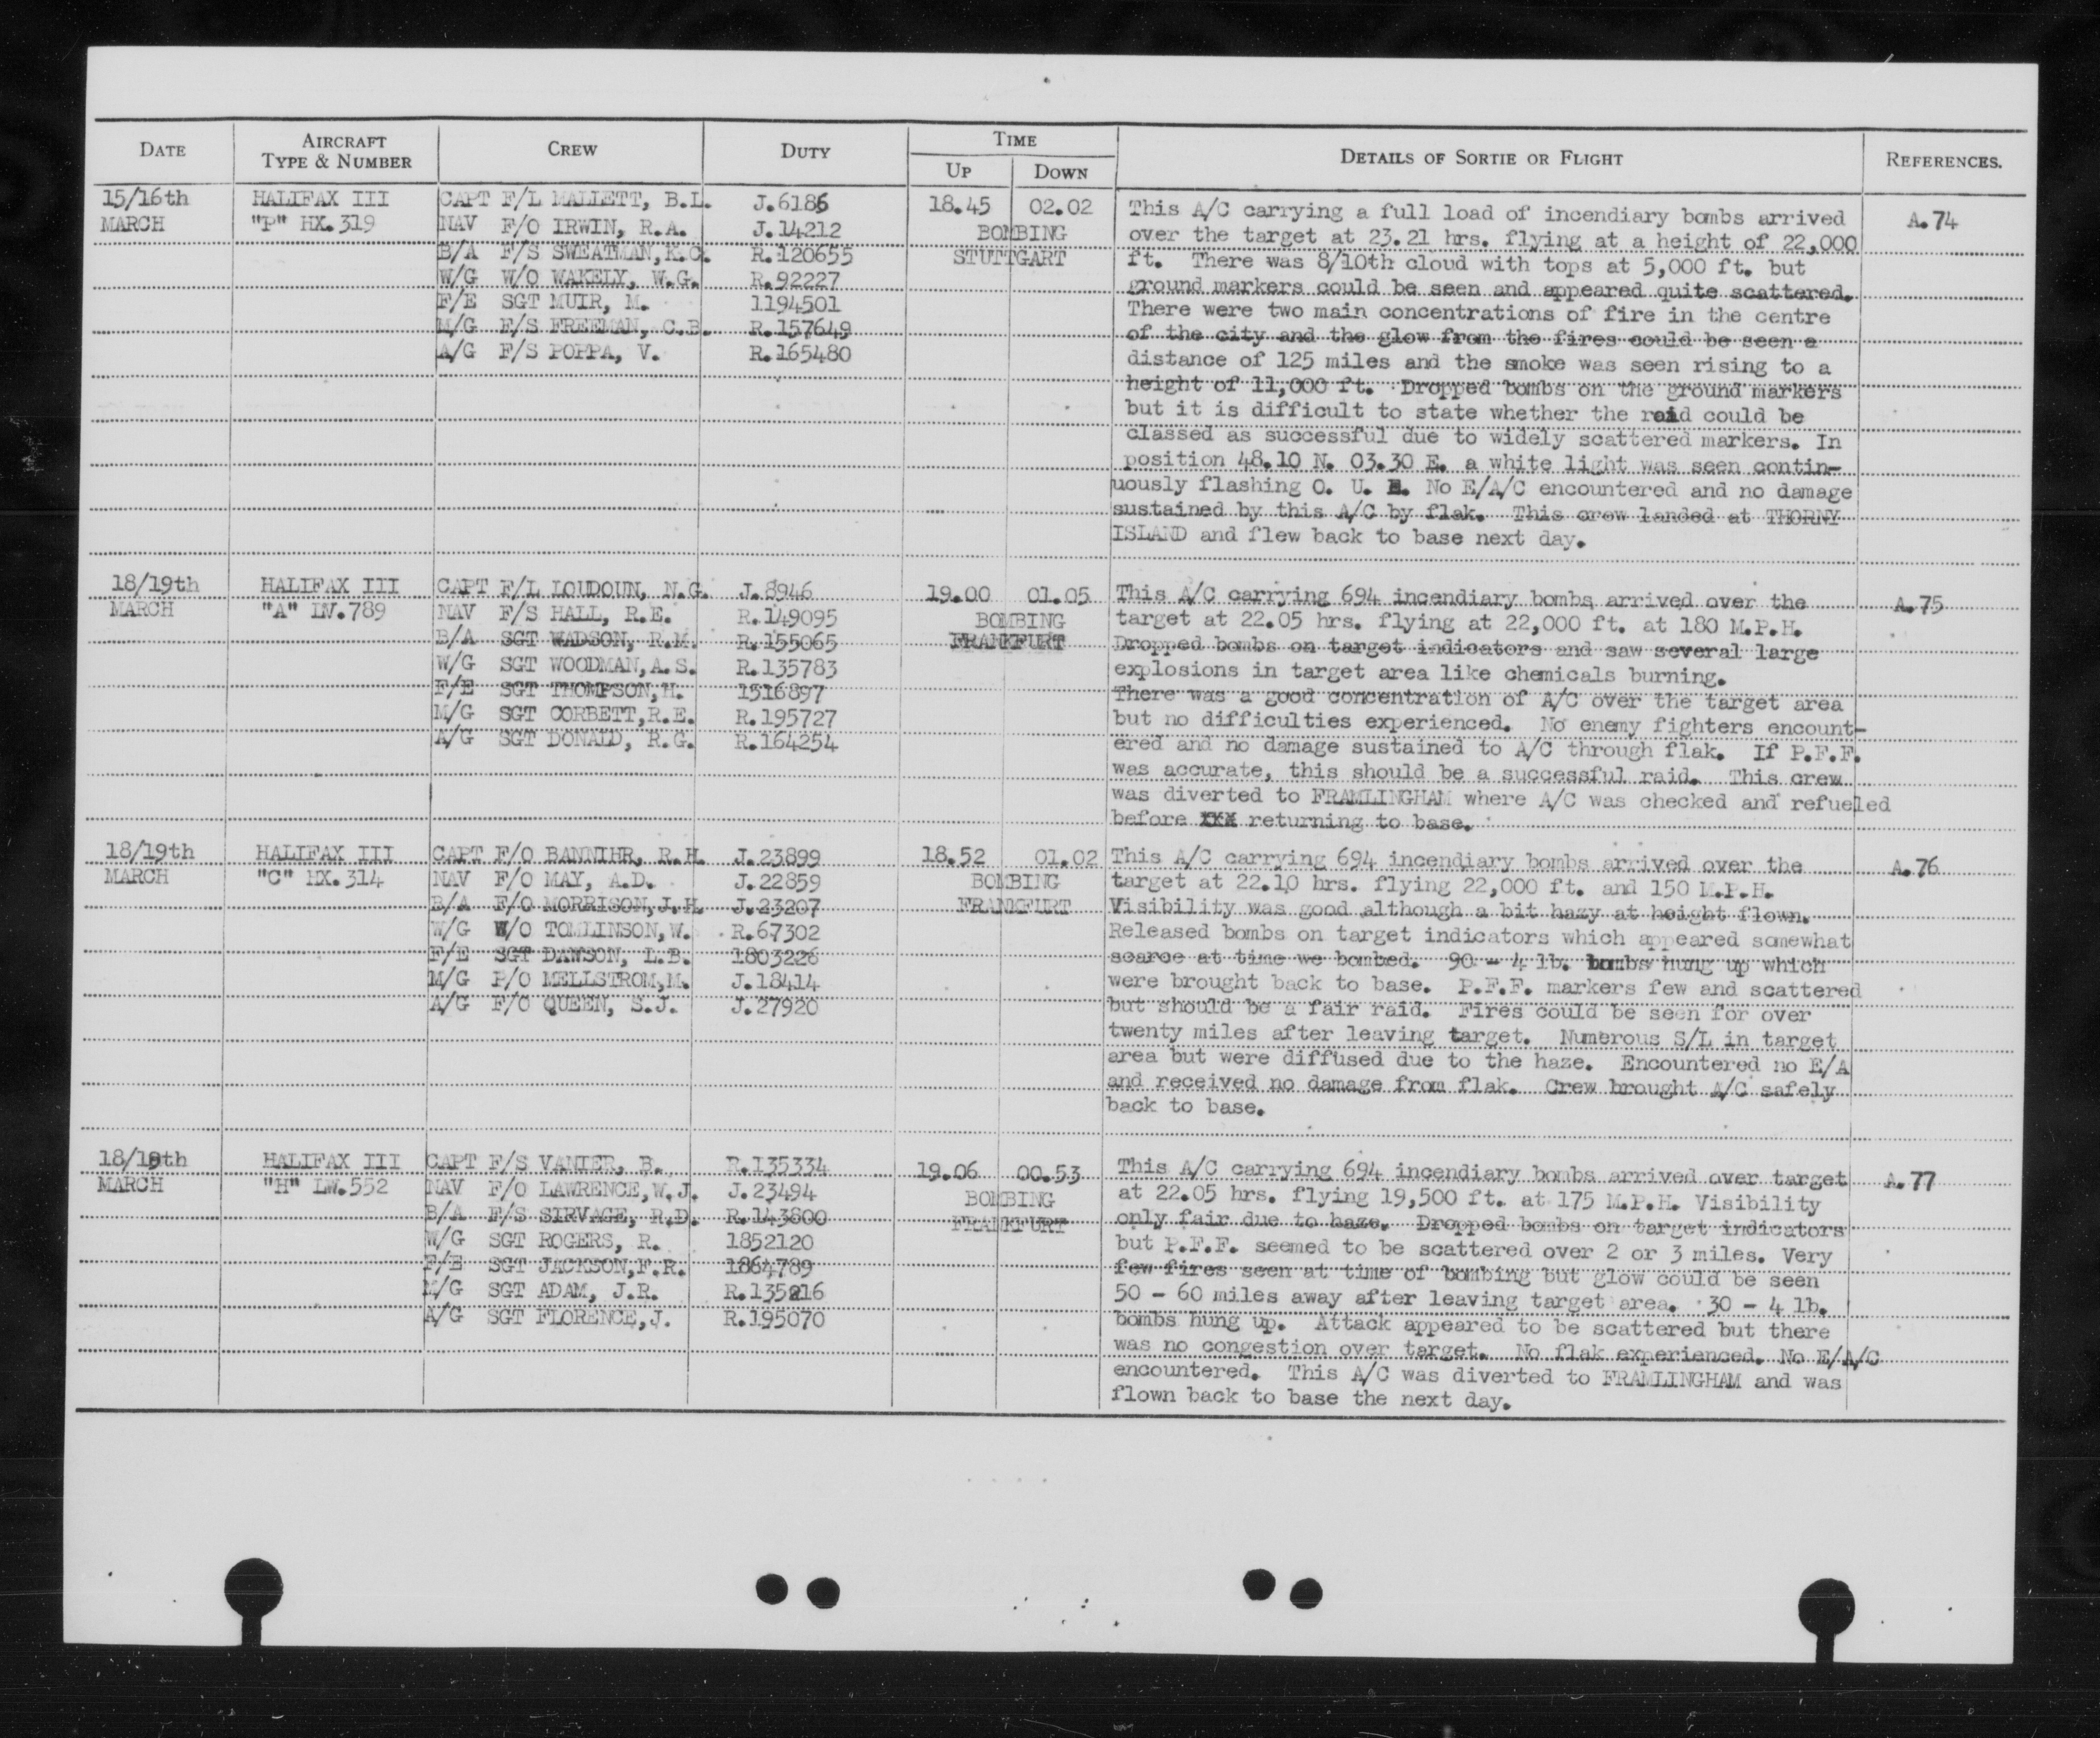 DATE
AIRCRAFT
TYPE & NUMBER
CREW
DUTY
TIME
UP
DOWN
DETAILS OF SORTIE OR FLIGHT
REFERENCES.
15/16th
MARCH
HALIFAX III
"P" HX.319
CAPT F/L MALLETT, B.L. J.6186
NAV F/O IRWIN, R.A. J.14212
B/A F/S SWEATMAN,K.C. R.120655
W/G W/O WAKELY, W.G. R.92227
F/E SGT MUIR, M. 1194501
M/G F/S FREEMAN, C.B. R.157649
A/G F/S POPPA, V. R.165480
18.45 02.02
BOMBING
STUTTGART
This A/C carrying a full load of incendiary bombs arrived
over the target at 23.21 hrs. flying at a height of 22,000
ft. There was 8/10th cloud with tops at 5,000 ft. but
ground markers could be seen and appeared quite scattered.
There were two main concentrations of fire in the centre
of the city and the glow from the fires could be seen a
distance of 125 miles and the smoke was seen rising to a
height of 11,000 ft. Dropped bombs on the ground markers
but it is difficult to state whether the raid could be
classed as successful due to widely scattered markers. In
position 48.10 N. 03.30 E. a white light was seen contin-
uously flashing O. U. E. No E/A/C encountered and no damage
sustained by this A/C by flak. This crew landed at THORNY
ISLAND and flew back to base next day.
A.74
18/19th
MARCH
HALIFAX III
"A" LV.789
CAPT F/L LOUDOUN, N.G. J.8946
NAV F/S HALL, R.E. R.149095
B/A SGT WADSON, R.M. R.155065
W/G SGT WOODMAN,A.S. R.135783
F/E SGT THOMPSON,H. 1516897
M/G SGT CORBETT,R.E. R.195727
A/G SGT DONALD, R.G. R.164254
19.00 01.05
BOMBING
FRANKFURT
This A/C carrying 694 incendiary bombs arrived over the
target at 22.05 hrs. flying at 22,000 ft. at 180 M.P.H.
Dropped bombs on target indicators and saw several large
explosions in target area like chemicals burning.
There was a good concentration of A/C over the target area
but no difficulties experienced. No enemy fighters encount-
ered and no damage sustained to A/C through flak. If P.F.F.
was accurate, this should be a successful raid. This crew
was diverted to FRAMLINGHAM where A/C was checked and refueled
before XXX returning to base.
A.75
18/19th
MARCH
HALIFAX III
"C" HX.314
CAPT F/O BANNIHR, R.H. J.23899
NAV F/O MAY, A.D. J.22859
B/A F/O MORRISON,J.H. J.23207
W/G W/O TOMLINSON,W. R.67302
F/E SGT DAWSON, L.B. 1803226
M/G P/O MELLSTROM,M. J.18414
A/G F/O QUEEN, S.J. J.27920
18.52 01.02
BOMBING
FRANKFURT
This A/C carrying 694 incendiary bombs arrived over the
target at 22.10 hrs. flying 22,000 ft. and 150 M.P.H.
Visibility was good although a bit hazy at height flown.
Released bombs on target indicators which appeared somewhat
scarce at time we bombed. 90 - 4 lb. bombs hung up which
were brought back to base. P.F.F. markers few and scattered
but should be a fair raid. Fires could be seen for over
twenty miles after leaving target. Numerous S/L in target
area but were diffused due to the haze. Encountered no E/A
and received no damage from flak. Crew brought A/C safely
back to base.
A.76
18/19th
MARCH
HALIFAX III
"H" LW.552
CAPT F/S VANIER, B. R.135334
NAV F/O LAWRENCE,W.J. J.23494
B/A F/S SIRVAGE, R.D. R.143800
W/G SGT ROGERS, R. 1852120
F/E SGT JACKSON,F.R. 1864789
M/G SGT ADAM, J.R.
A/G SGT FLORENCE,J. R.195070
19.06 00.53
BOMBING
FRANKFURT
This A/C carrying 694 incendiary bombs arrived over target
at 22.05 hrs. flying 19,500 ft. at 175 M.P.H. Visibility
only fair due to haze. Dropped bombs on target indicators
but P.F.F. seemed to be scattered over 2 or 3 miles. Very
few fires seen at time of bombing but glow could be seen
50 - 60 miles away after leaving target area. 30 - 4 lb.
bombs hung up. Attack appeared to be scattered but there
was no congestion over target. No flak experienced. No E/A/C
encountered. This A/C was diverted to FRAMLINGHAM and was
flown back to base the next day.
A.77